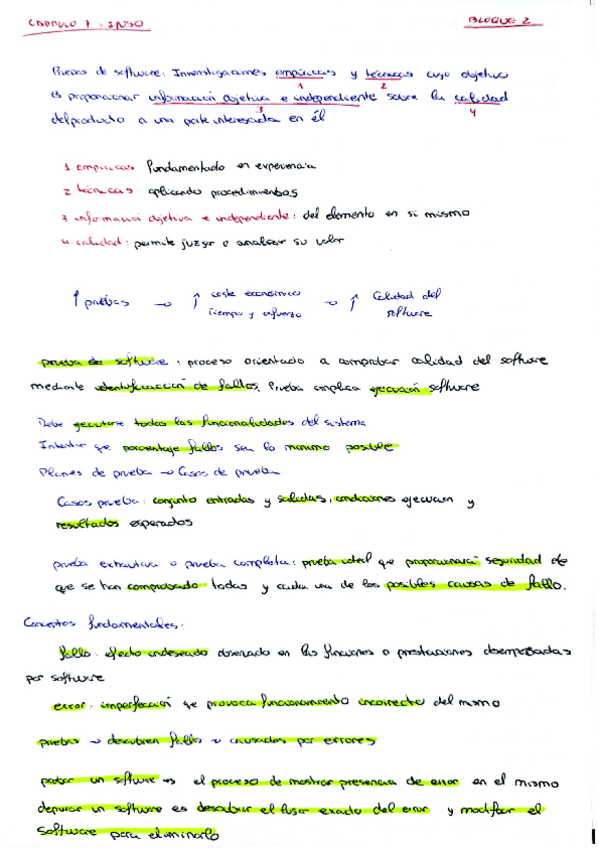 CAPITULO 7 : INSO
BLOQUE 2
Pruebas de software: Investigaciones empíricas y técnicas cuyo objetivo
es proporcionar información objetiva e independiente sobre la calidad
del producto a una parte interesada en él
1 2
3 4
1 empíricas fundamentado en experiencia
2 técnicas: aplicando procedimientos
3 información objetiva e independiente: del elemento en sí mismo
4 calidad: permite juzgar o analizar su valor
↑ pruebas → ↑ coste económico → ↑ Calidad del
tiempo y esfuerzo software
prueba de software: proceso orientado a comprobar calidad del software
mediante identificación de fallos. Prueba implica ejecución software
Debe ejecutarse todas las funcionalidades del sistema
Intentar que porcentaje fallos sea lo mínimo posible
Planes de prueba → Casos de prueba
Casos prueba: conjunto entradas y salidas, condiciones ejecución y
resultados esperados
prueba exhaustiva o prueba completa: prueba ideal que proporcionaría seguridad de
que se han comprobado todas y cada una de las posibles causas de fallo.
Conceptos fundamentales:
fallo: efecto indeseado observado en las funciones o prestaciones desempeñadas
por software
error: imperfección que provoca funcionamiento incorrecto del mismo
pruebas → descubren fallos → causados por errores
probar un software → el proceso de mostrar presencia de error en el mismo
depurar un software es descubrir el lugar exacto del error y modificar el
software para eliminarlo